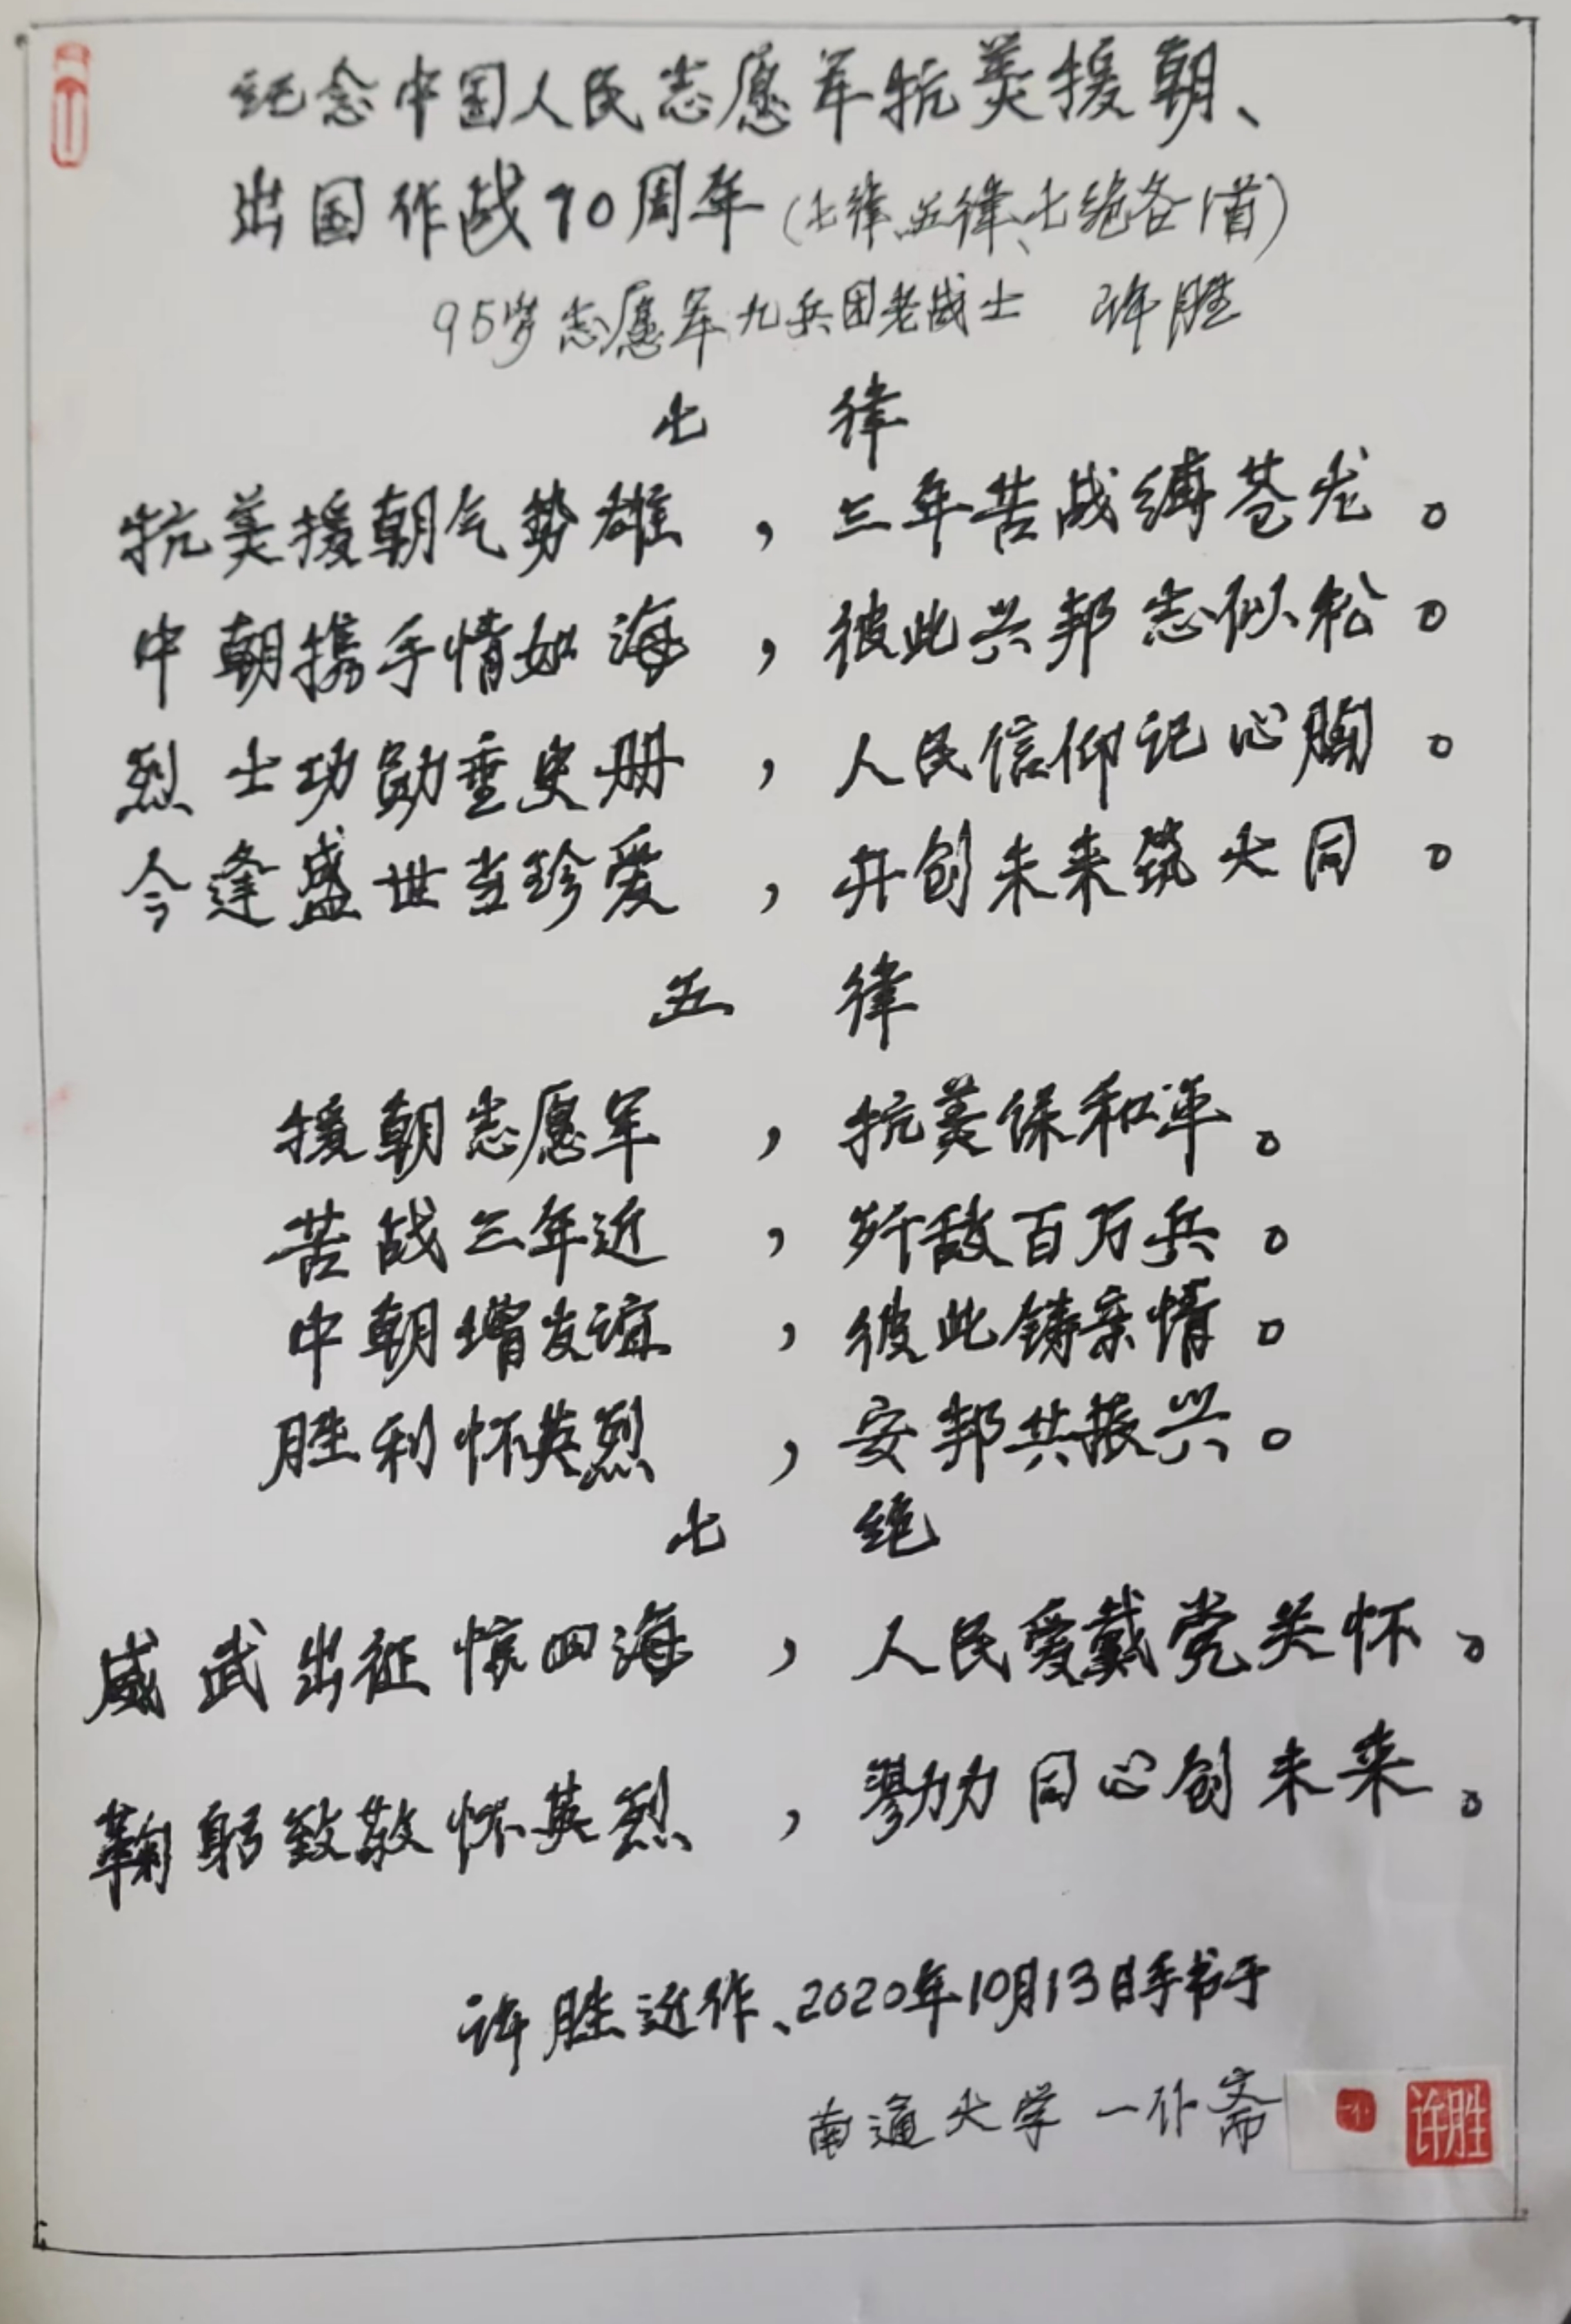 纪念中国人民志愿军抗美援朝、
出国作战70周年(七律、五律、七绝各1首)
95岁志愿军九兵团老战士 许胜
七 律
抗美援朝气势雄,三年苦战缚苍龙。
中朝携手情如海,彼此兴邦志似松。
烈士功勋垂史册,人民信仰记心胸。
今逢盛世当珍爱,开创未来筑大同。
五 律
援朝志愿军,抗美保和平。
苦战三年近,歼敌百万兵。
中朝增友谊,彼此铸亲情。
胜利怀英烈,安邦共振兴。
七 绝
威武出征惊四海,人民爱戴党关怀。
鞠躬致敬怀英烈,勠力同心创未来。
许胜近作、2020年10月13日手书于
南通大学一仆斋
许胜